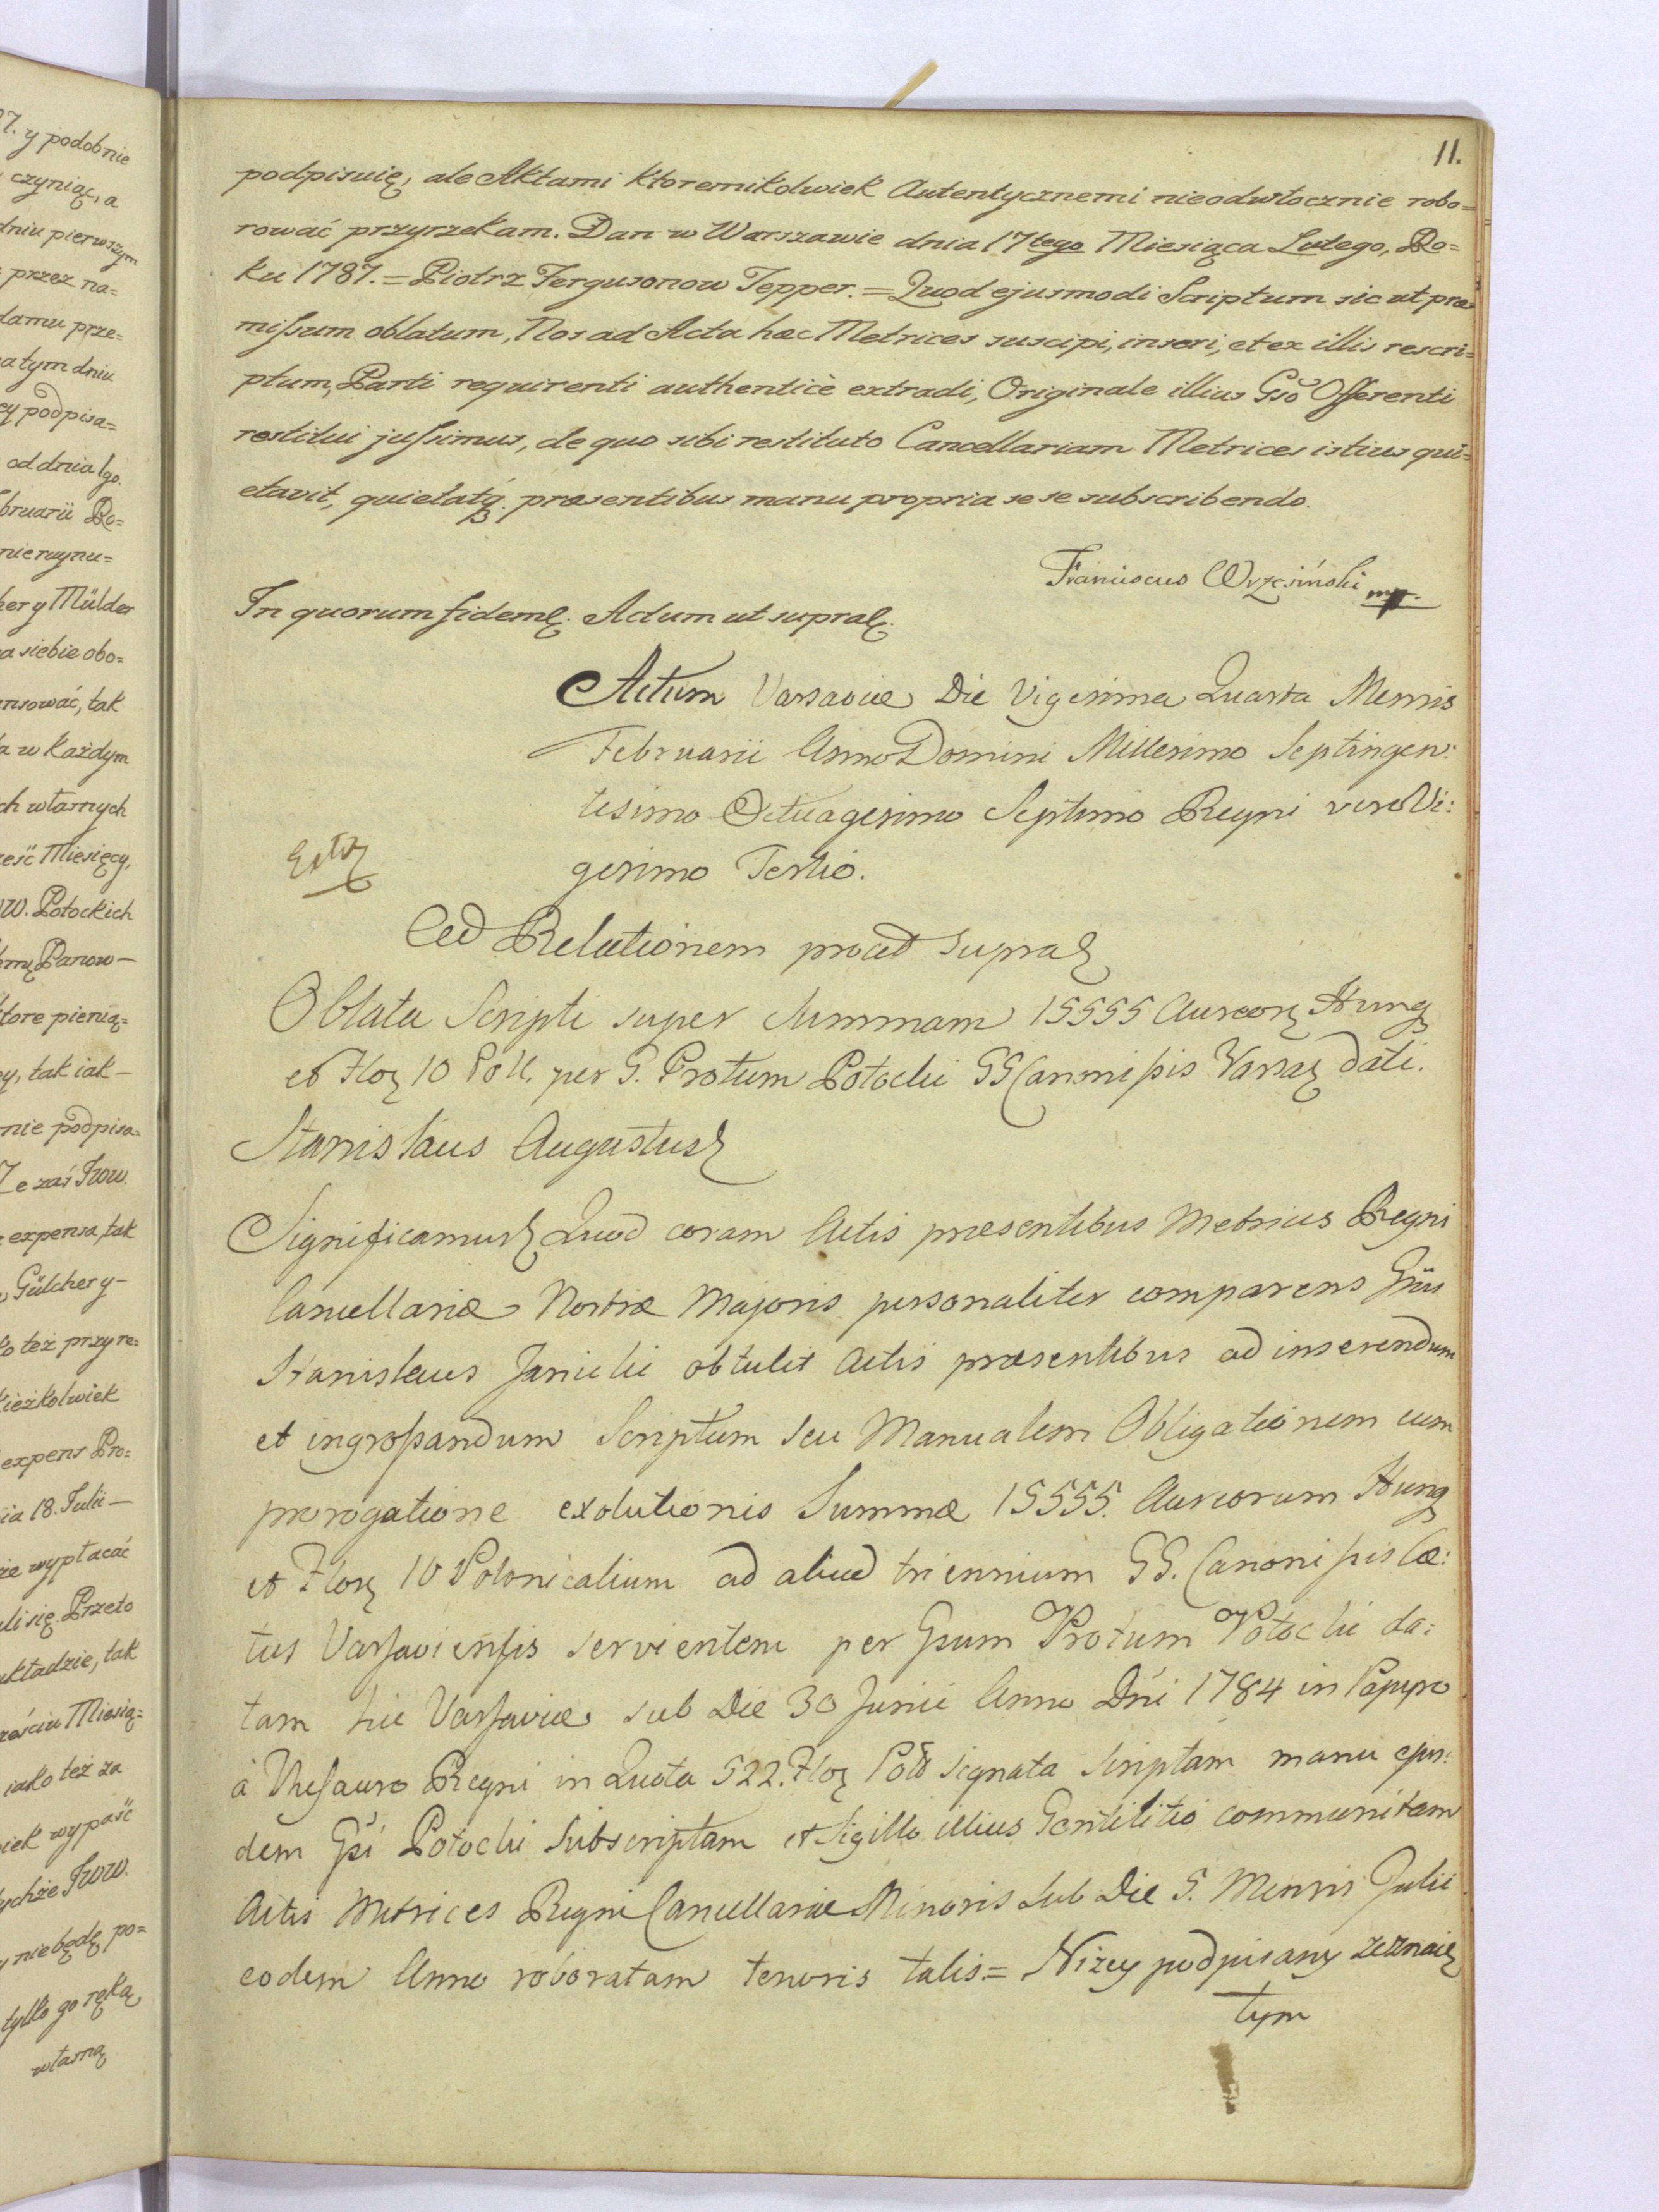 7. y podobnie
czyniąc, a
dniu pierwszym
przez na=
damu prze=
a tym dniu
ey podpisa=
od dnia 1go.
bruarii Ro=
nie wynu=
her y Mülder
a siebie obo=
nsować, tak
a w każdym
ch własnych
eść Miesięcy,
W. Potockich
Panow—
tore pienią=
y, tak iak—
nie podpisa=
Ze zaś Jww.
expensa, tak
Gülcher y—
o też przyre=
kieżkolwiek
expens Pro=
ia 18. Julii—
ie wypłacać
li się. Przeto
układzie, tak
ześciu Miesią=
iako też za
iek wypaść
ychże Jww.
y nie będę po=
tylko go ręką
własną
11.
podpisuię, ale Aktami ktoremikolwiek Autentycznemi nieodwłocznie robo=
rować przyrzekam. Dan w Warszawie dnia 17tego Miesiąca Lutego, Ro=
ku 1787. = Piotrz Fergusonow Tepper. = Quod ejusmodi Scriptum sic ut præ=
missum oblatum, Nos ad Acta hæc Metrices suscipi, inseri, et ex illis rescri=
ptum, Parti requirenti authenticè extradi, Originale illius Gso Offerenti
restitui jussimus, de quo sibi restituto Cancellariam Metrices istius qui=
etavit, quietatq. præsentibus manu propria se se subscribendo.
Franciscus Wrzesiński mp.
In quorum fidem. Actum ut supra.
Actum Varsaviæ Die Vigesima Quarta Mensis
Februarii Anno Domini Millesimo Septingen:
tesimo Octuagesimo Septimo Regni vero Vi:
gesimo Tertio.
Extr
Ad Relationem prout supra
Oblata Scripti super Summam 15555 Aureor Hung
et Flor 10 Poll. per G. Protum Potocki GG Canonissis Varsav dati.
Stanislaus Augustus
Significamus Quod coram Actis præsentibus Metrices Regni
Cancellariæ Nostræ Majoris personaliter comparens Gnus
Stanislaus Janicki obtulit Actis præsentibus ad inserendum
et ingrossandum Scriptum seu Manualem Obligationem cum
prorogatione exolutionis Summæ 15555. Aureorum Hung
et Flor 10 Polonicalium ad aliud triennium GG. Canonissis Cæ:
tus Varsaviensis servientem per Gsum Protum Potocki da:
tam hic Varsaviæ sub Die 30 Junii Anno Dni 1784 in Papyro
à Thesauro Regni in Quota 522. Flor Poll signata scriptam manu ejus:
dem Gsi Potocki Subscriptam et Sigillo illius Gentilitio communitam
Actis Metrices Regni Cancellariæ Minoris Sub Die 5. Mensis Julii
eodem Anno roboratam tenoris talis = Niżey podpisany zeznaię
tym